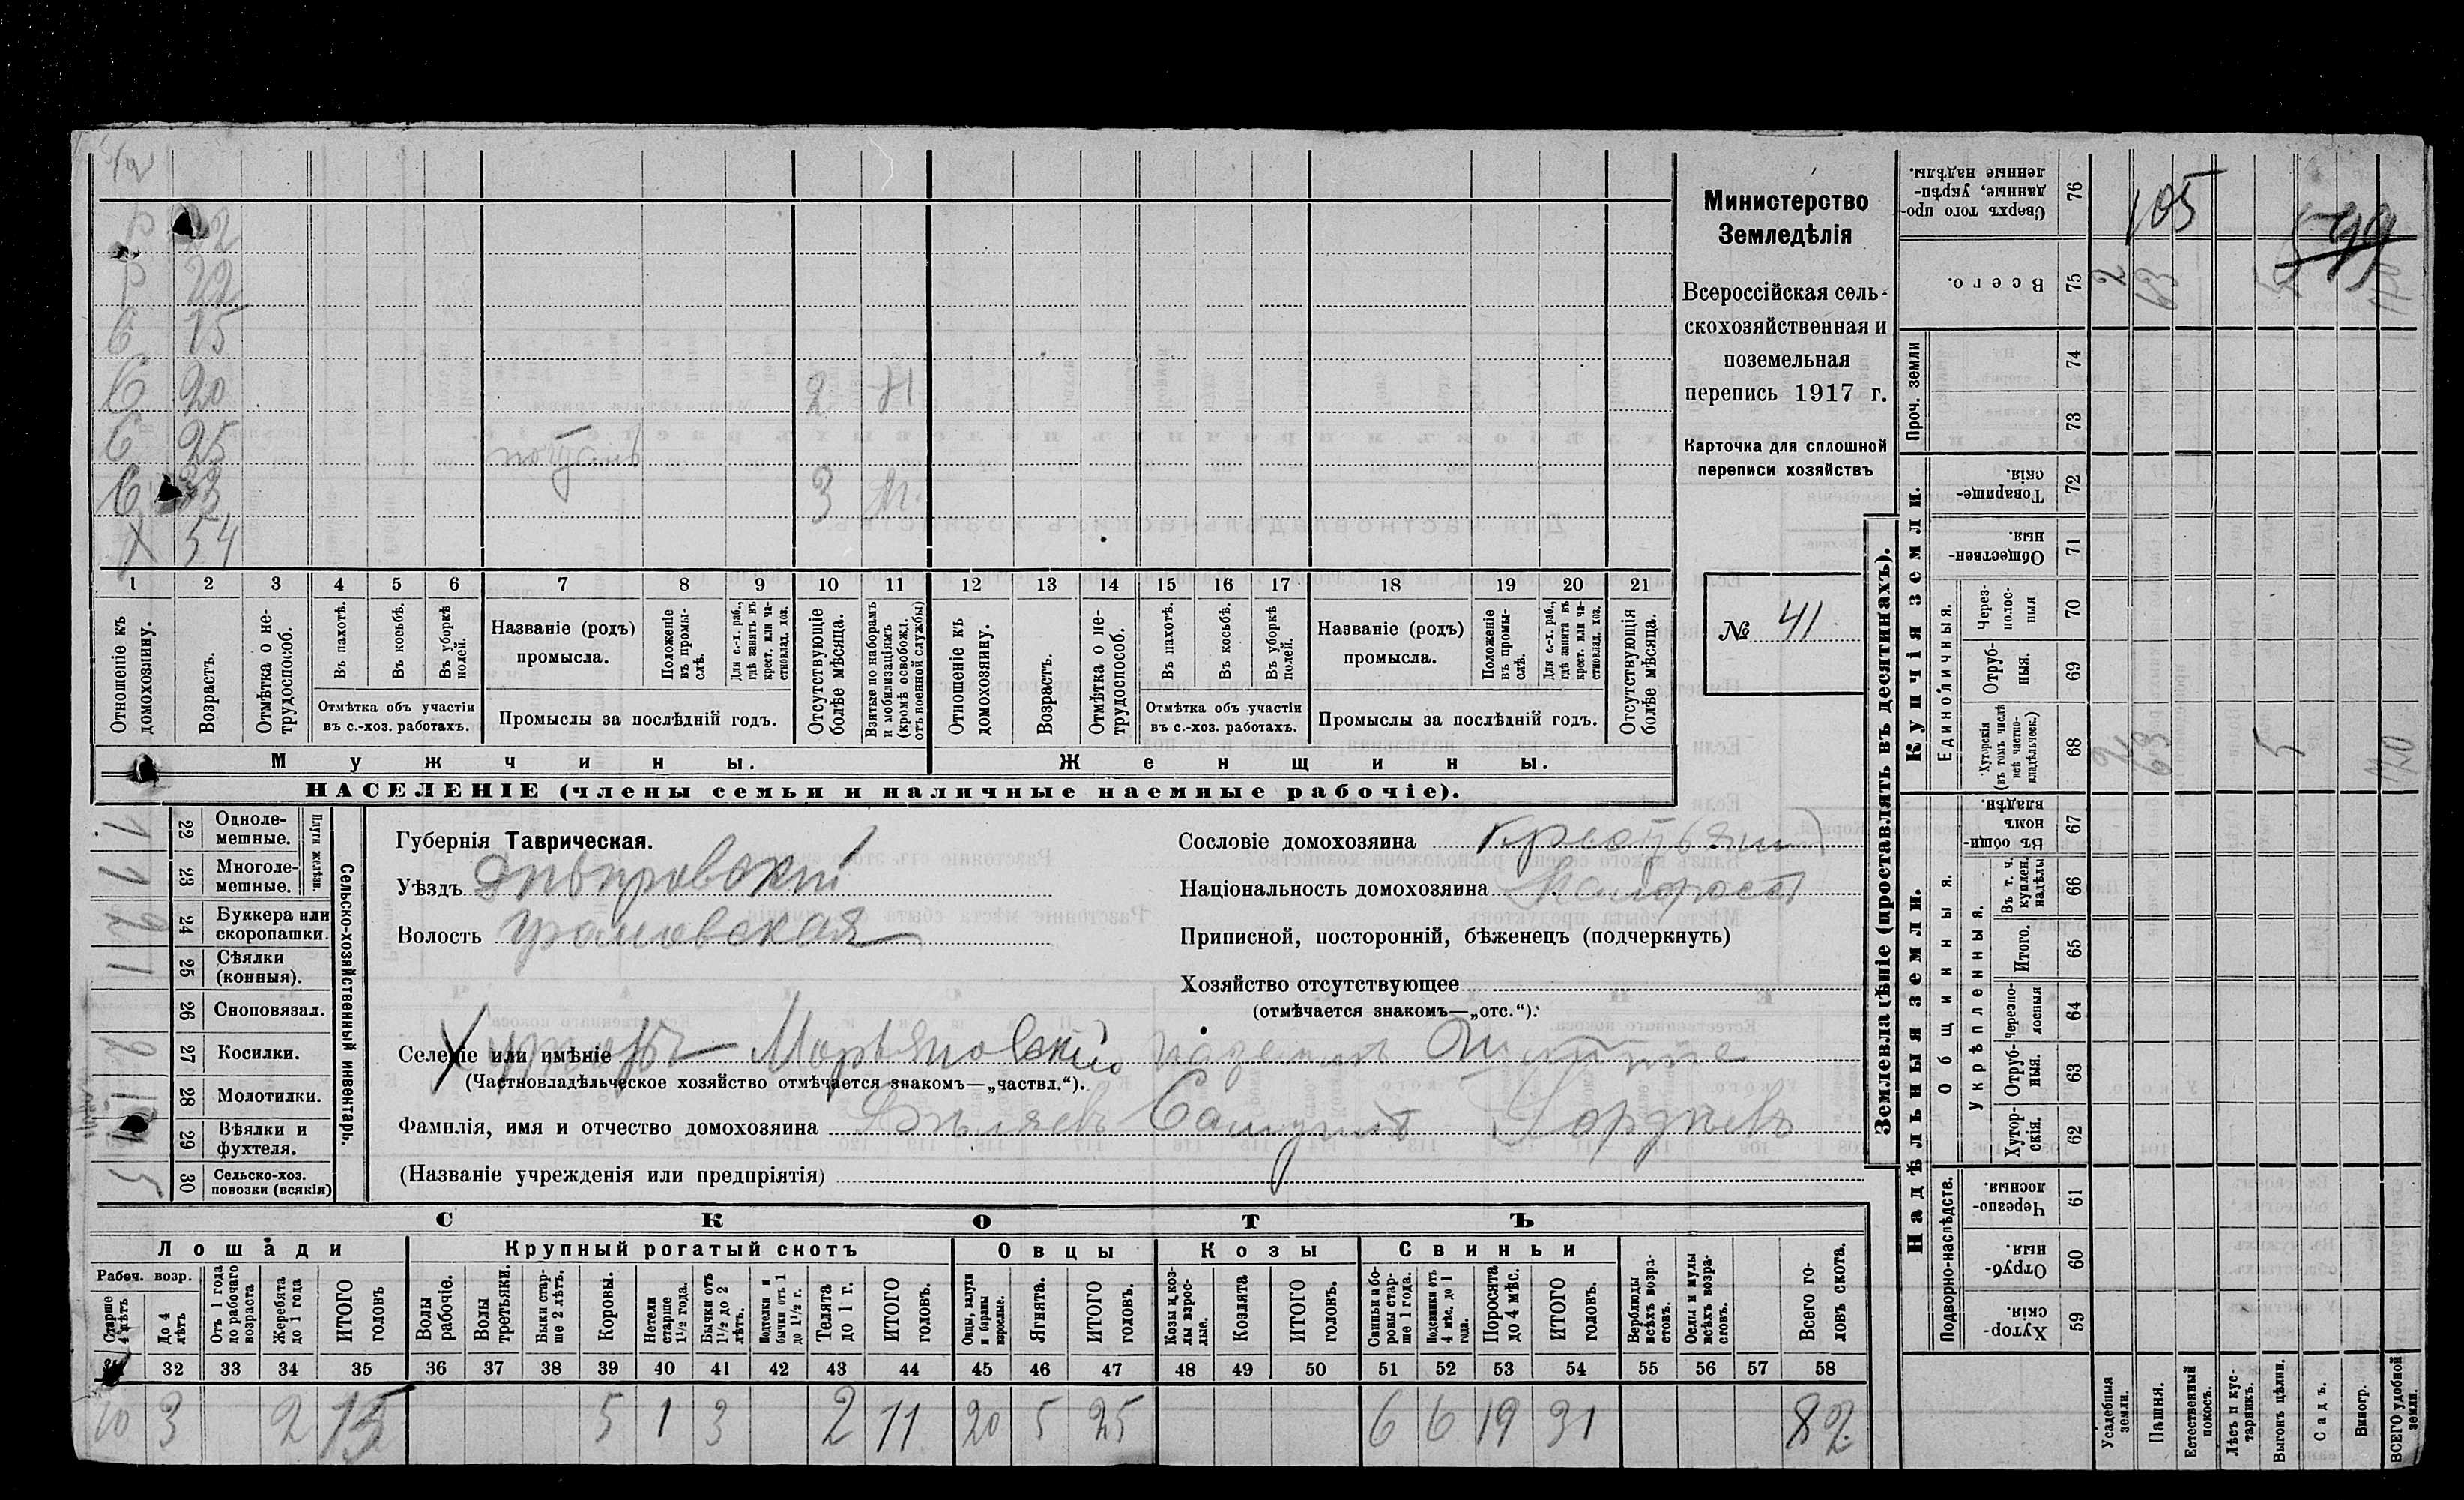 Министерство
Земледѣлія
Всероссійская сель-
скохозяйственная и
поземельная
перепись 1917 г.
Карточка для сплошной
переписи хозяйствъ
№ 41
22
22
С 15
С 20 2
С 25
С 33 3
Х 54
1 2 3 4 5 6 7 8 9 10 11 12 13 14 15 16 17 18 19 20 21
Отношеніе къ домохозяину.
Возрастъ.
Отмѣтка о не-трудоспособ.
Въ пахотѣ.
Въ косьбѣ.
Въ уборкѣ полей.
Отмѣтка объ участіи
въ с.-хоз. работахъ.
Названіе (родъ)
промысла.
Положеніе въ промы-слѣ.
Для с.-х. раб., гдѣ занятъ въ крест. или ча-стновлад. хоз.
Промыслы за послѣдній годъ.
Отсутствующіе болѣе мѣсяца.
Взятые по наборамъ и мобилизаціямъ (кромѣ освобожд. отъ военной службы)
Отношеніе къ домохозяину.
Возрастъ.
Отмѣтка о не-трудоспособ.
Въ пахотѣ.
Въ косьбѣ.
Въ уборкѣ полей.
Отмѣтка объ участіи
въ с.-хоз. работахъ.
Названіе (родъ)
промысла.
Положеніе въ промы-слѣ.
Для с.-х. раб., гдѣ занята въ крест. или ча-стновлад. хоз.
Промыслы за послѣдній годъ.
Отсутствующія болѣе мѣсяца.
Мужчины.
Женщины.
НАСЕЛЕНІЕ (члены семьи и наличные наемные рабочіе).
Сельско-хозяйственный инвентарь.
Плуги желѣзн.
22 Одноле-мешные. 1
23 Многоле-мешные. 1
24 Буккера или скоропашки.
25 Сѣялки (конныя). 1
26 Сноповязал.
27 Косилки.
28 Молотилки.
29 Вѣялки и фухтеля.
30 Сельско-хоз. повозки (всякія) 5
Губернія Таврическая.
Уѣздъ Днѣпровскій
Волость
Сословіе домохозяина
Національность домохозяина Малоросъ
Приписной, посторонній, бѣженецъ (подчеркнуть)
Хозяйство отсутствующее
(отмѣчается знакомъ—„отс.“).
Селеніе или имѣніе Хуторъ Марьяновскій
(Частновладѣльческое хозяйство отмѣчается знакомъ—„частвл.“).
Фамилія, имя и отчество домохозяина Бѣляевъ
(Названіе учрежденія или предпріятія)
СКОТЪ
Лошади
Крупный рогатый скотъ
Овцы
Козы
Свиньи
Рабоч. возр.
Старше 4 лѣтъ
До 4 лѣтъ
Отъ 1 года до рабочаго возраста
Жеребята до 1 года
ИТОГО головъ
Волы рабочіе.
Волы третьяки.
Быки стар-ше 2 лѣтъ.
Коровы.
Нетели старше 1½ года.
Бычки отъ 1½ до 2 лѣтъ.
Подтелки и бычки отъ 1 до 1½ г.
Телята до 1 г.
ИТОГО головъ.
Овцы, валухи и бараны взрослые.
Ягнята.
ИТОГО головъ.
Козы и коз-лы взрос-лые.
Козлята
ИТОГО головъ.
Свиньи и бо-ровы стар-ше 1 года.
Подсвинки отъ 4 мѣс. до 1 года.
Поросята до 4 мѣс.
ИТОГО головъ.
Верблюды всѣхъ возра-стовъ.
Ослы и мулы всѣхъ возра-стовъ.
Всего го-ловъ скота.
32 33 34 35 36 37 38 39 40 41 42 43 44 45 46 47 48 49 50 51 52 53 54 55 56 57 58
10 3 2 15 5 1 3 2 11 20 5 25 6 6 19 31 82
Землевладѣніе (проставлять въ десятинахъ).
Купчія земли.
Надѣльныя земли.
Сверхъ того про-данные, укрѣп-ленные надѣлы. 76 105
Всего. 75 2 63
Проч. земли 74
73
Товарище-скія. 72
Обществен-ныя. 71
Единоличныя.
Через-полос-ныя 70
Отруб-ныя. 69
Хуторскія (въ томъ числѣ всѣ частно-владѣльческ.) 68 2 63 5
Общинныя.
Въ общи-номъ владѣн. 67
Укрѣпленныя.
Въ т. ч. куплен. надѣлы 66
Итого. 65
Черезпо-лосныя 64
Отруб-ныя. 63
Хутор-скія. 62
Подворно-наслѣдств.
Черезпо-лосныя. 61
Отруб-ныя. 60
Хутор-скія. 59
Усадебныя земли.
Пашня.
Естественный покосъ.
Лѣсъ и кус-тарникъ.
Выгонъ цѣлин.
Садъ.
Виногр.
ВСЕГО удобной земли.